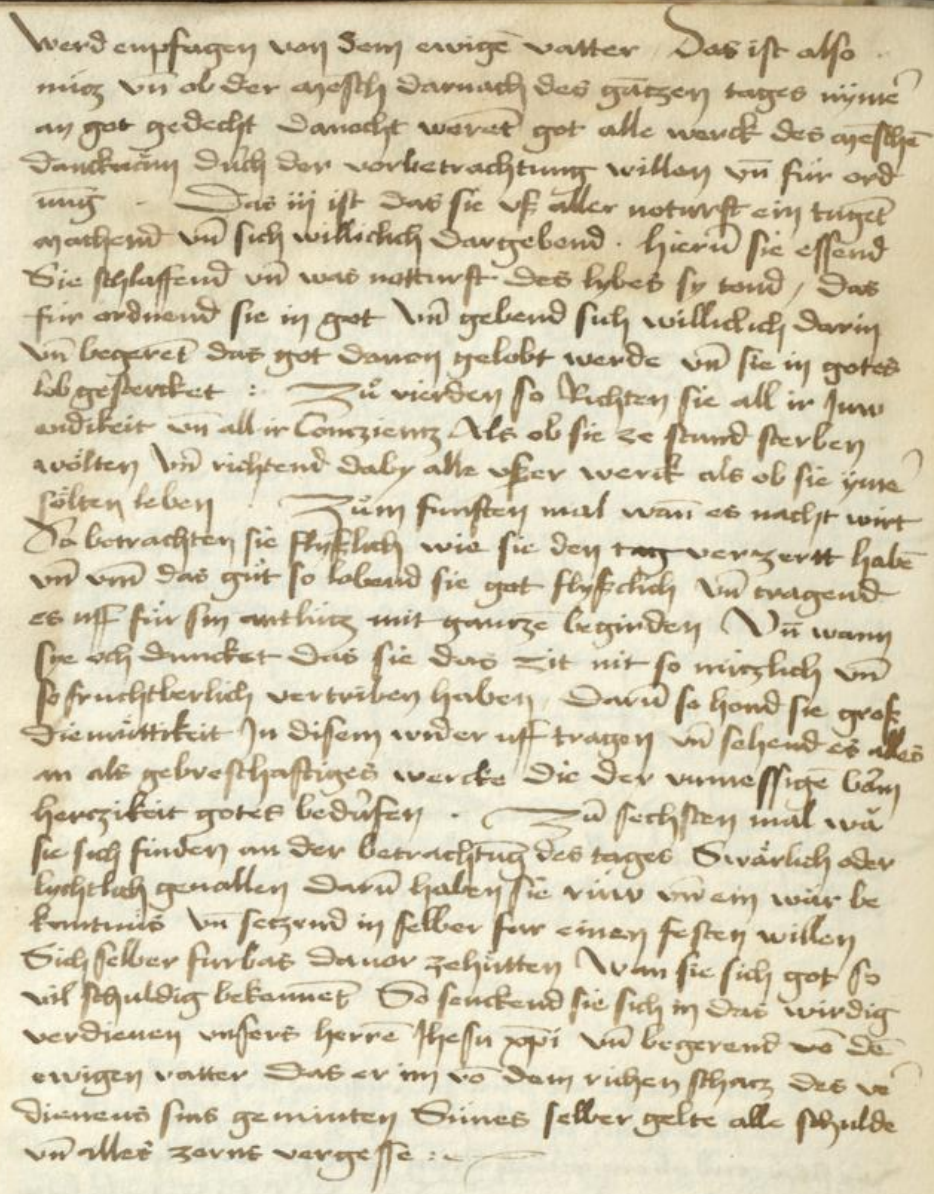 werd enpfagen von dem ewigē vatter / Das ist also
nücz vn̄ ob der mēsch darnach des gāczen tages nÿme᷑
an got gedecht dānocht weret got alle werck des mēschē
dancknem durch der vorbetrachtung willen vn̄ für ord
nūg · Das iij ist das sie vß aller noturft ein tuget
machend vn̄ sich williclich dargebend · hierū sie essend
Sie schlaffend vn̄ was notturft des lybes sy tond / das
für ordnend sie in got Vn̄ gebend sich williclich darin
Vn̄ begeret das got dauon gelobt werde vn̄ sie in gotes
lob gestercket : Zů vierden so Richten sie all ir Inw
endikeit vn̄ all ir Concziencz Als ob sie ze stund sterben
wölten Vn̄ richtend daby alle vßer werck als ob sie ÿme᷑
sölten leben Zům funften mal wān es nacht wirt
So betrachten sie flyßlich wie sie den tag verzertt habē
vn̄ vm̄ das gůt so lobend sie got flyßclich Vn̄ tragend
es uff für sin antlücz mit gantzē begirden Vn̄ wann
sye och duncket das sie das zit nit so nüczlich vn̄
so fruchtberlich vertriben haben / Darū so hond sie groß
diemüttikeit In disem wider uff tragen vn̄ sehend es alles
an als gebreschaftiges wercke die der vnmessigē barm
herczikeit gotes bedürfen · Zů sechsten mal wā
sie sich finden an der betrachtūg des tages Swärlich oder
lychtlich geuallen darū haben sie rüw vn̄ ein war be
kantnüs vn̄ setzend in selber für einen festen willen
Sich selber fürbas dauor zehütten Wan sie sich got so
vil schuldig bekennet So senckend sie sich in das wirdig
verdienen vnsers herrē Jhesu xp̄i vn̄ begerend vō dē
ewigen vatter das er im vō dem richen schacz des ve᷑
dienens sins geminten Sunes selber gelte alle schulde
vn̄ alles zorns vergesse :~